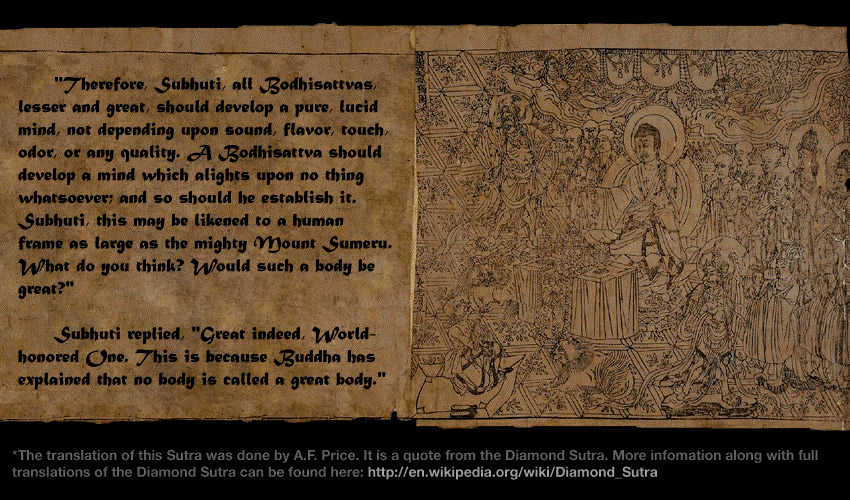 "Therefore, Subhuti, all Bodhisattvas,
lesser and great, should develop a pure, lucid
mind, not depending upon sound, flavor, touch,
odor, or any quality. A Bodhisattva should
develop a mind which alights upon no thing
whatsoever; and so should he establish it.
Subhuti, this may be likened to a human
frame as large as the mighty Mount Sumeru.
What do you think? Would such a body be
great?"
Subhuti replied, "Great indeed, World-
honored One. This is because Buddha has
explained that no body is called a great body."
*The translation of this Sutra was done by A.F. Price. It is a quote from the Diamond Sutra. More infomation along with full
translations of the Diamond Sutra can be found here: http://en.wikipedia.org/wiki/Diamond_Sutra